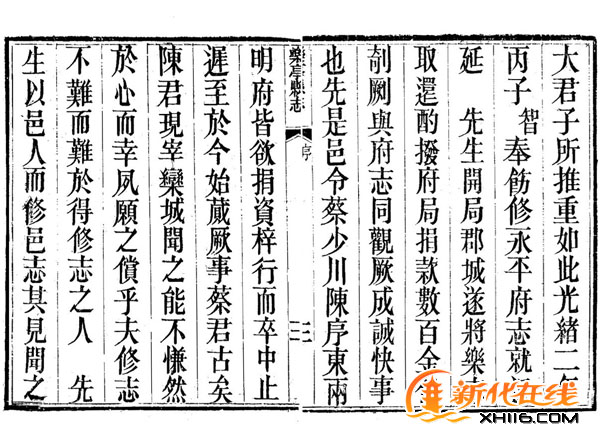 大君子所推重如此光緒二年
丙子 智 奉飭修永平府志就
延 先生開局郡城遂將樂
取還酌撥府局捐款數百金
剞劂與府志同觀厥成誠快事
也先是邑令蔡少川陳序東兩
樂亭縣志 序
明府皆欲捐資梓行而卒中止
遲至於今始蕆厥事蔡君古矣
陳君現宰欒城聞之能不慊然
於心而幸夙願之償乎夫修志
不難而難於得修志之人 先
生以邑人而修邑志其見聞之
新化在线
XH116.COM